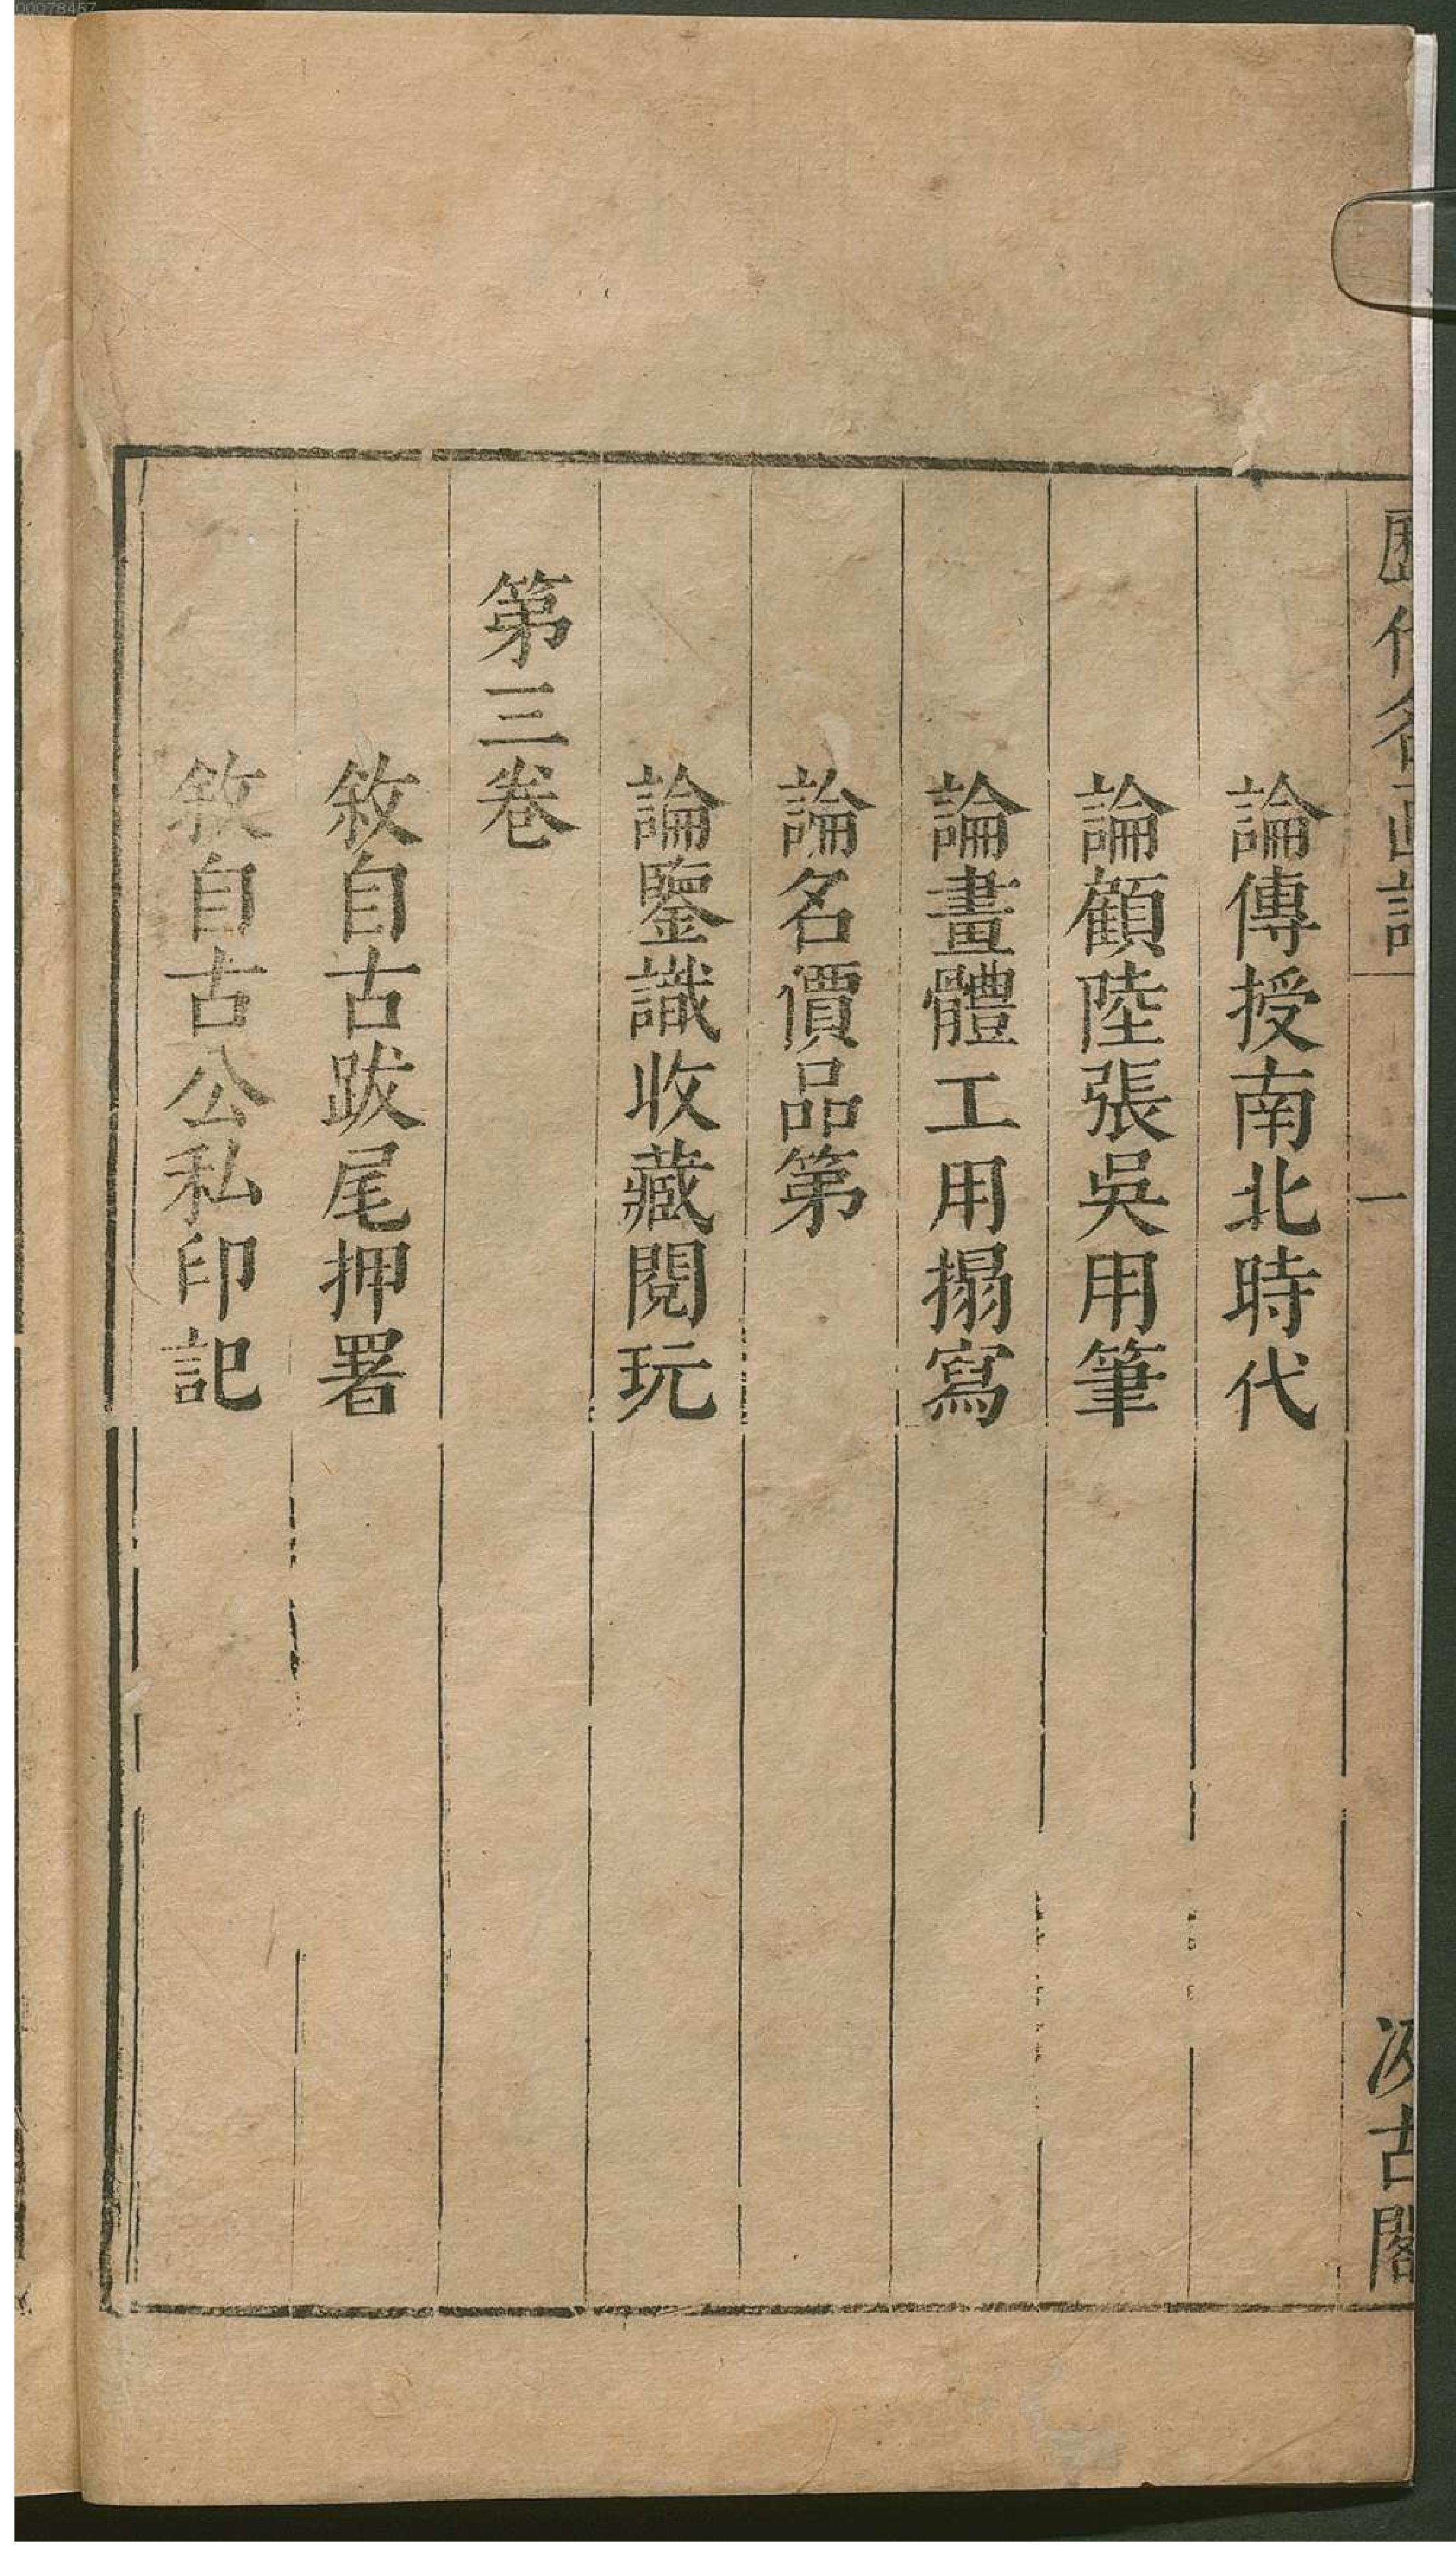 歷代名画記
一
汲古閣
論傳授南北時代
論顧陸張吳用筆
論畫體工用搨寫
論名價品第
論鑒識收藏閱玩
第三卷
敘自古跋尾押署
敘自古公私印記
00078457